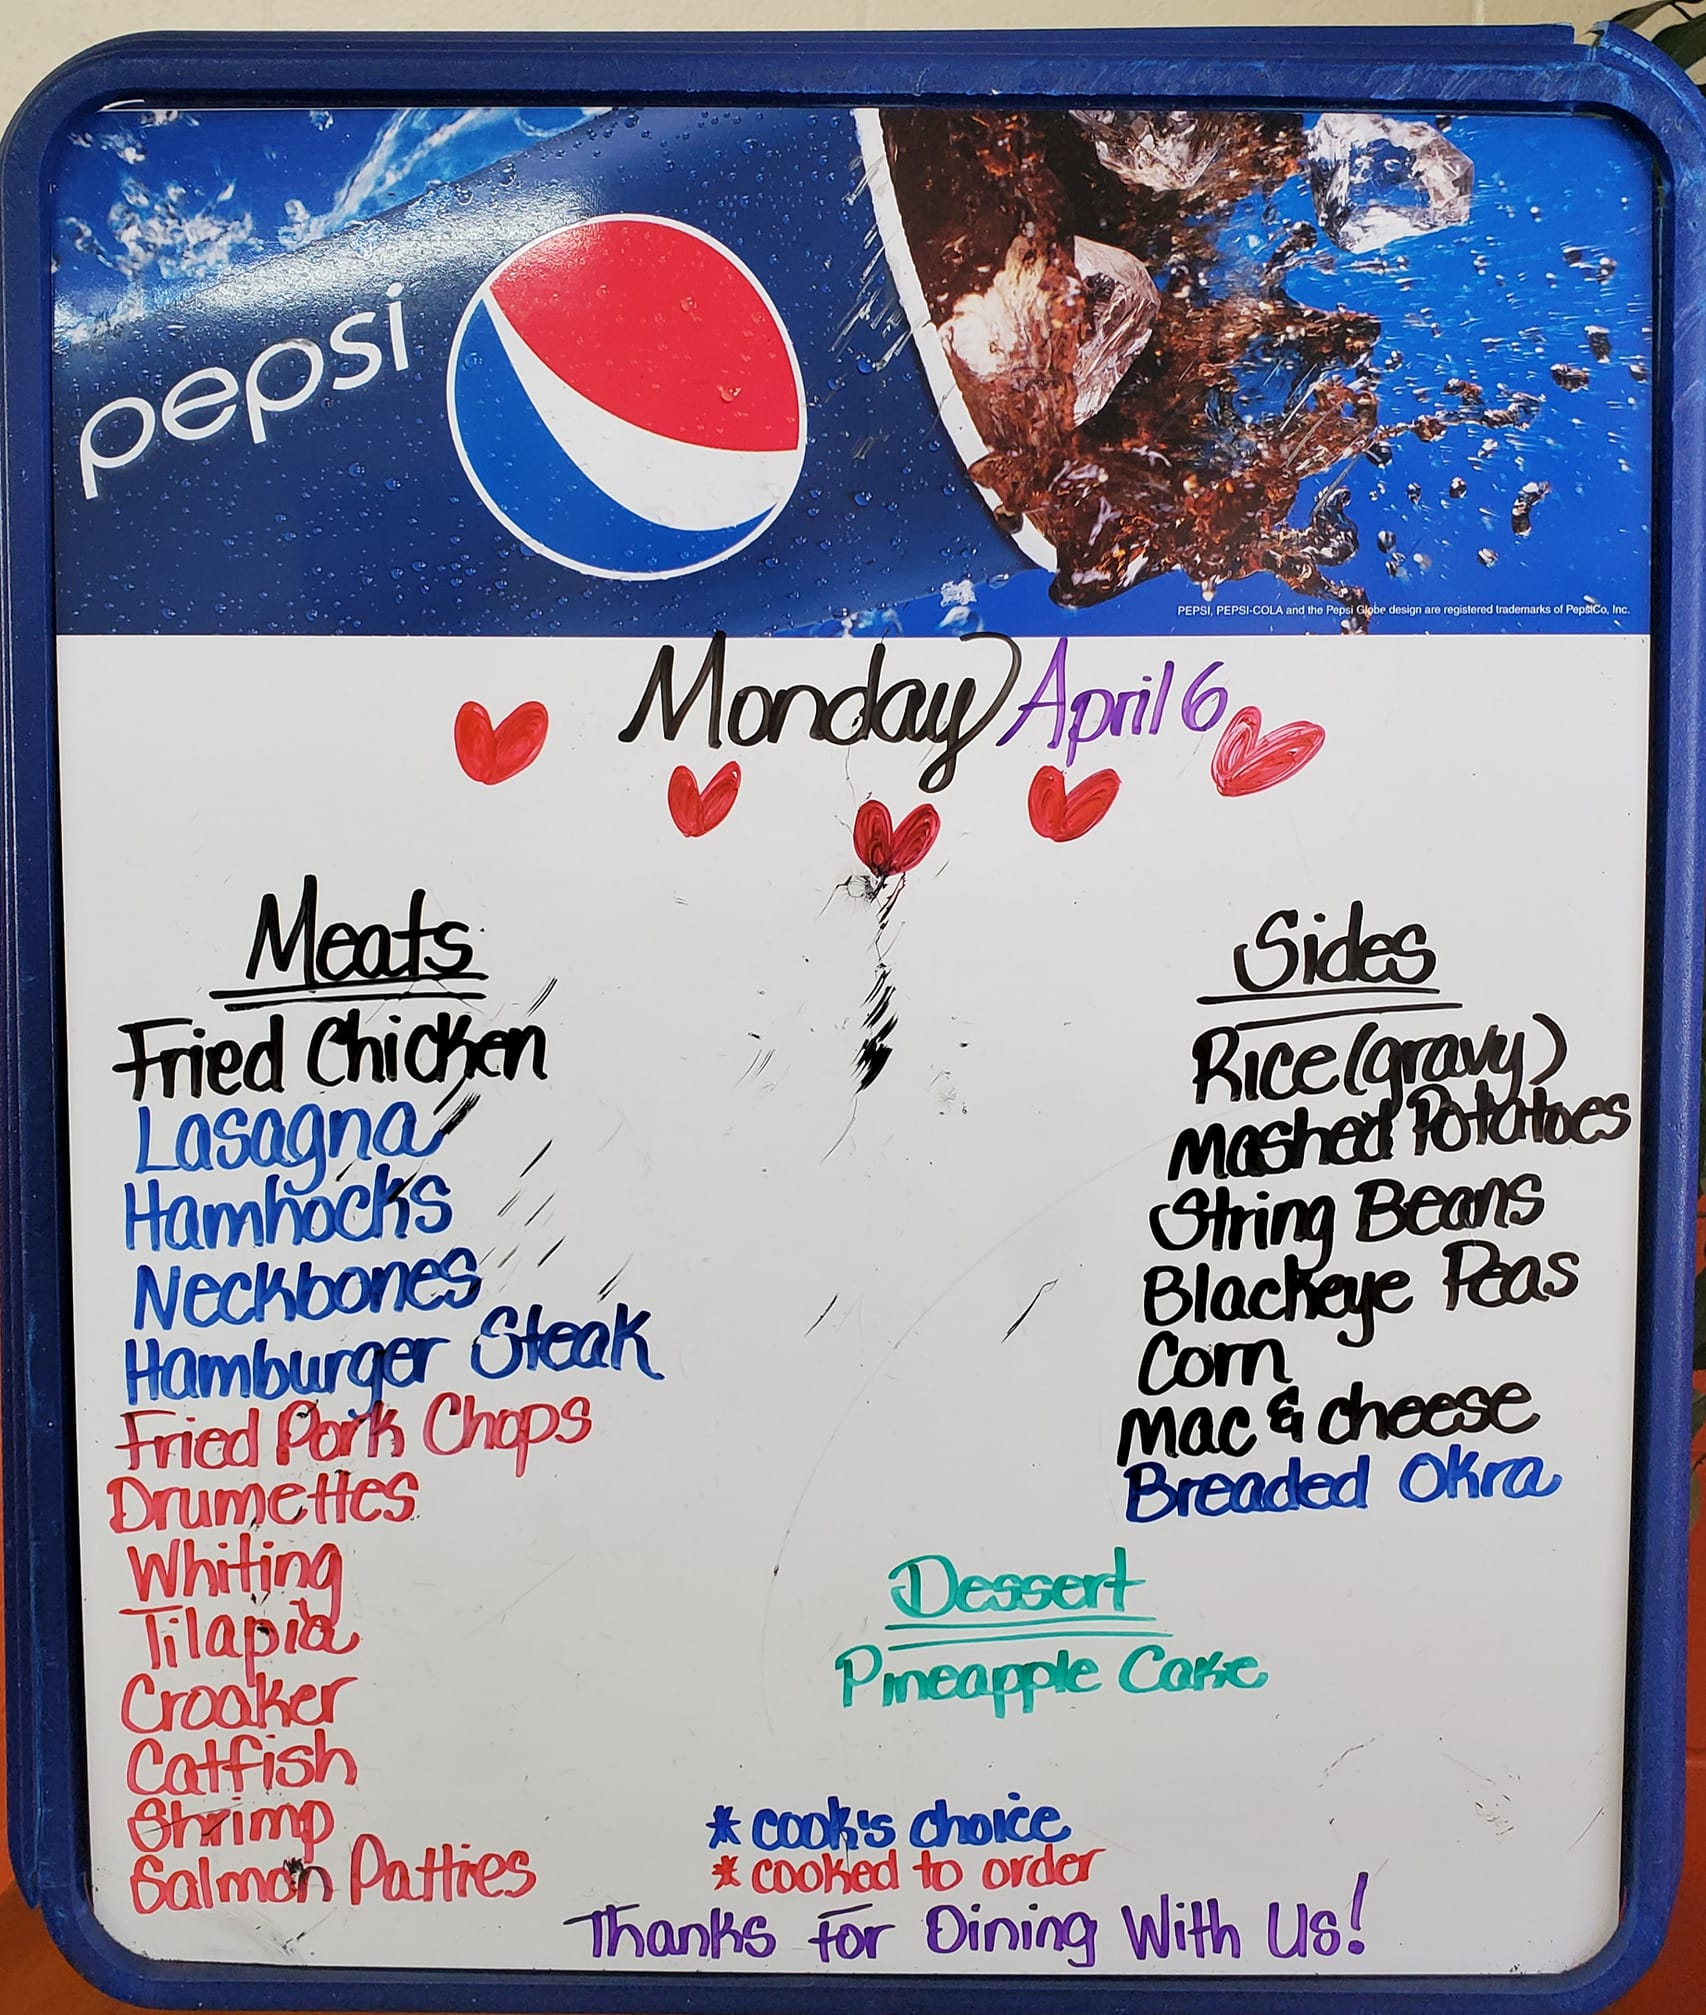 pepsi
PEPSI, PEPSI-COLA and the Pepsi Globe design are registered trademarks of PepsiCo, Inc.
Monday April 6
Meats
Fried Chicken
Lasagna
Hamhocks
Neckbones
Hamburger Steak
Fried Pork Chops
Drumettes
Whiting
Tilapia
Croaker
Catfish
Shrimp
Salmon Patties
Sides
Rice (gravy)
Mashed Potatoes
String Beans
Blackeye Peas
Corn
Mac & cheese
Breaded Okra
Dessert
Pineapple Cake
* cook's choice
* cooked to order
Thanks For Dining With Us!